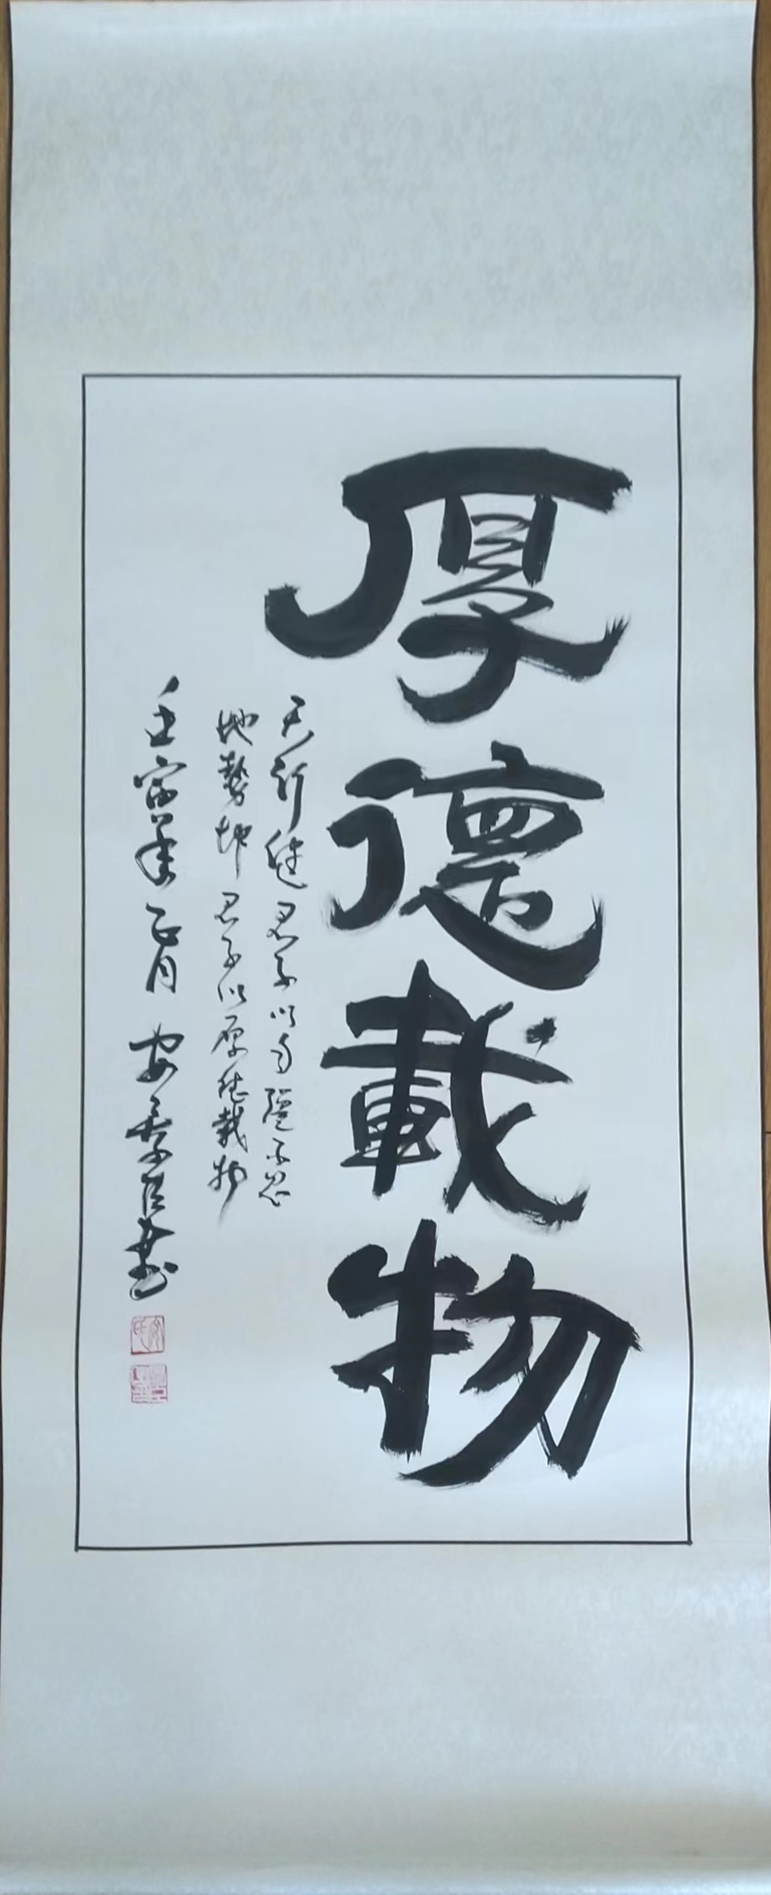 厚德載物
天行健君子以自强不息
地勢坤君子以厚德載物
壬寅年正月 安季